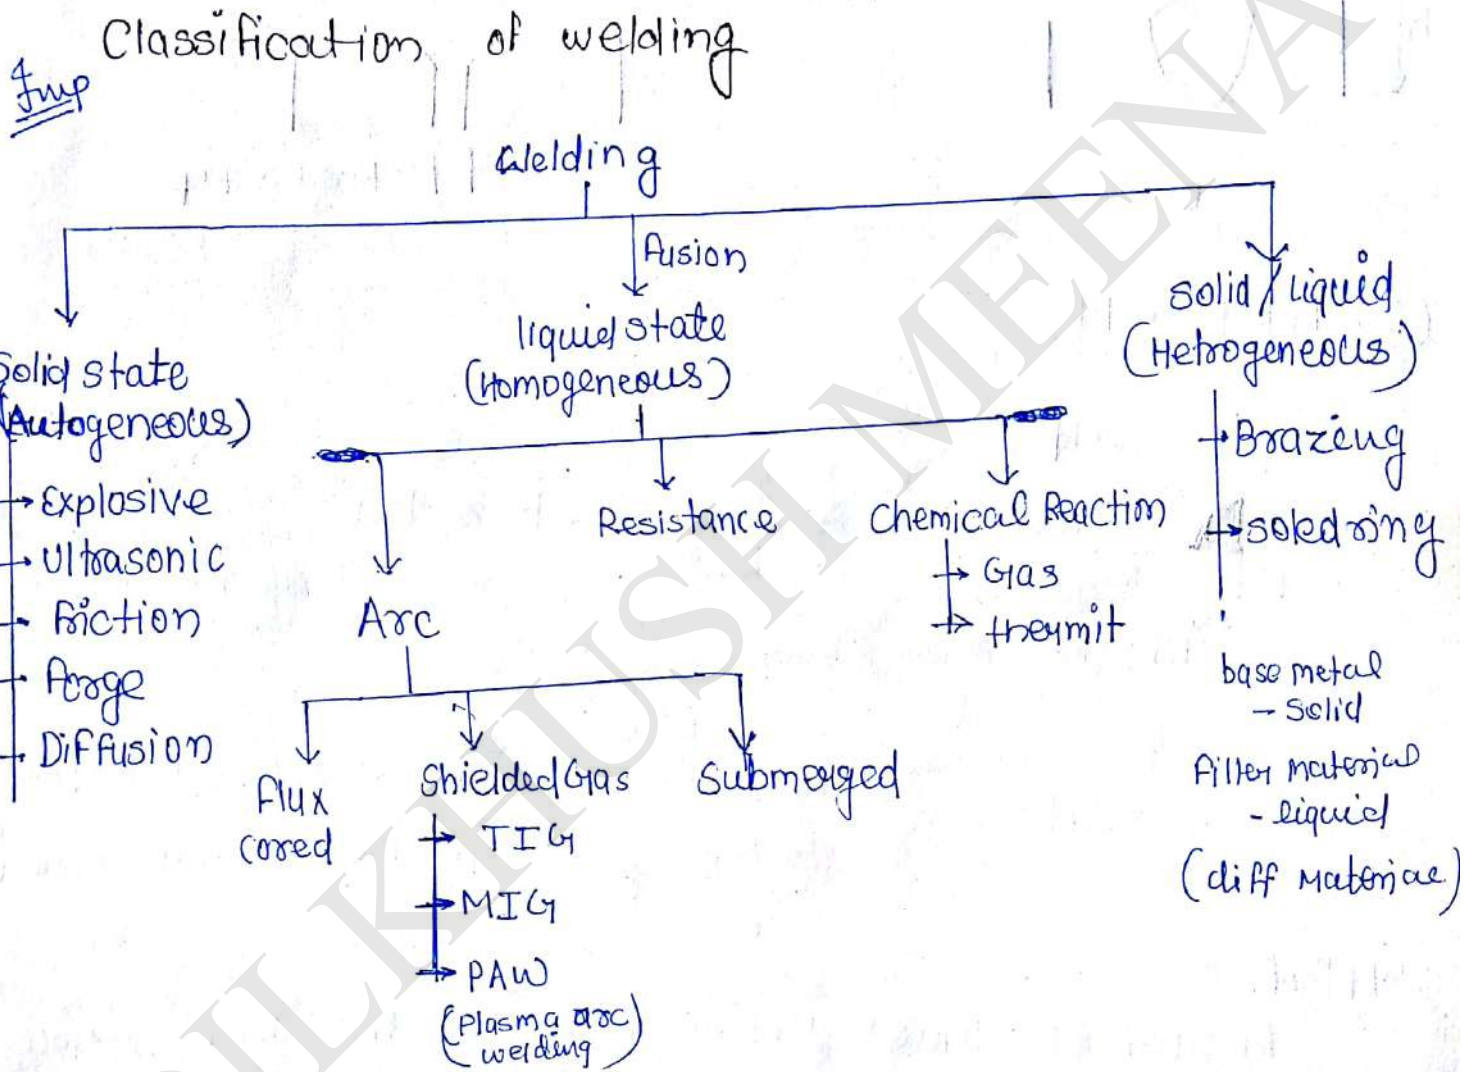 Classification of welding
Imp
Welding
Fusion
Solid state
(Autogeneous)
Explosive
Ultrasonic
Friction
Forge
Diffusion
liquid state
(Homogeneous)
Arc
Flux
cored
Shielded Gas
TIG
MIG
PAW
(Plasma arc
welding)
Submerged
Resistance
Chemical Reaction
Gas
thermit
Solid / liquid
(Hetrogeneous)
Brazing
soledring
base metal
- Solid
Filler material
- liquid
(diff material)
DILKHUSH MEENA